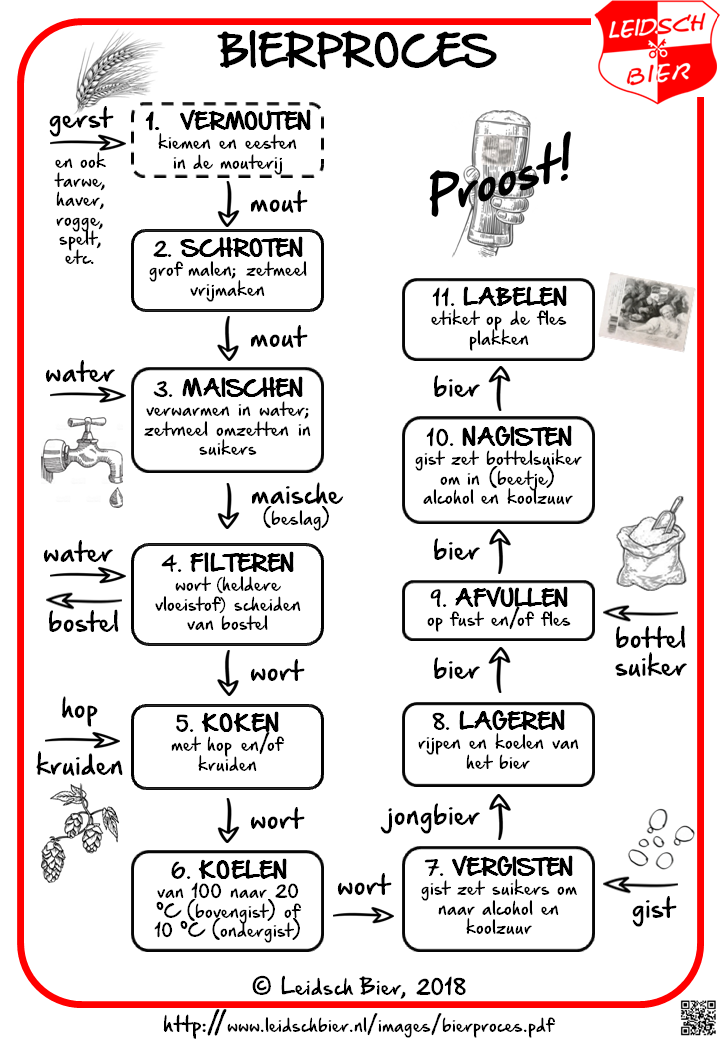 BIERPROCES
LEIDSCH
BIER
gerst
en ook
tarwe,
haver,
rogge,
spelt,
etc.
1. VERMOUTEN
kiemen en eesten
in de mouterij
mout
2. SCHROTEN
grof malen; zetmeel
vrijmaken
mout
water
3. MAISCHEN
verwarmen in water;
zetmeel omzetten in
suikers
maische
(beslag)
water
bostel
4. FILTEREN
wort (heldere
vloeistof) scheiden
van bostel
wort
hop
kruiden
5. KOKEN
met hop en/of
kruiden
wort
6. KOELEN
van 100 naar 20
°C (bovengist) of
10 °C (ondergist)
wort
7. VERGISTEN
gist zet suikers om
naar alcohol en
koolzuur
gist
jongbier
8. LAGEREN
rijpen en koelen van
het bier
bier
9. AFVULLEN
op fust en/of fles
bottel
suiker
bier
10. NAGISTEN
gist zet bottelsuiker
om in (beetje)
alcohol en koolzuur
bier
11. LABELEN
etiket op de fles
plakken
Proost!
© Leidsch Bier, 2018
http://www.leidschbier.nl/images/bierproces.pdf